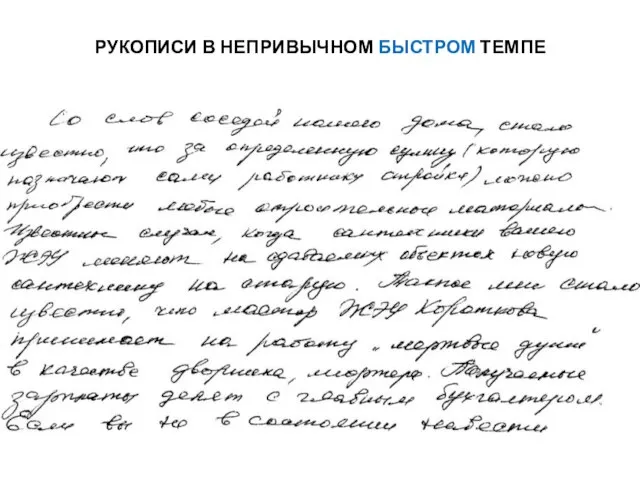 РУКОПИСИ В НЕПРИВЫЧНОМ БЫСТРОМ ТЕМПЕ
Со слов соседей нашего дома, стало
известно, что за определенную сумму (которую
назначают сами работники стройки) можно
приобрести любые строительные материалы.
Известны случаи, когда сантехники вашего
ЖЭУ меняют на сдаваемых объектах новую
сантехнику на старую. Также мне стало
известно, что мастер ЖЭУ Короткова
принимает на работу „мертвые души"
в качестве дворника, маляра. Получаемые
зарплаты делят с главным бухгалтером.
Если вы не в состоянии навести